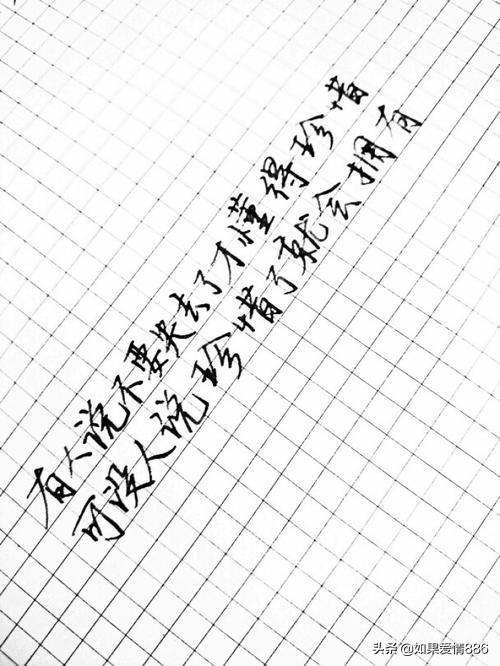 有人说不要失去了才懂得珍惜
可没人说珍惜了就会拥有
头条@如果爱情886